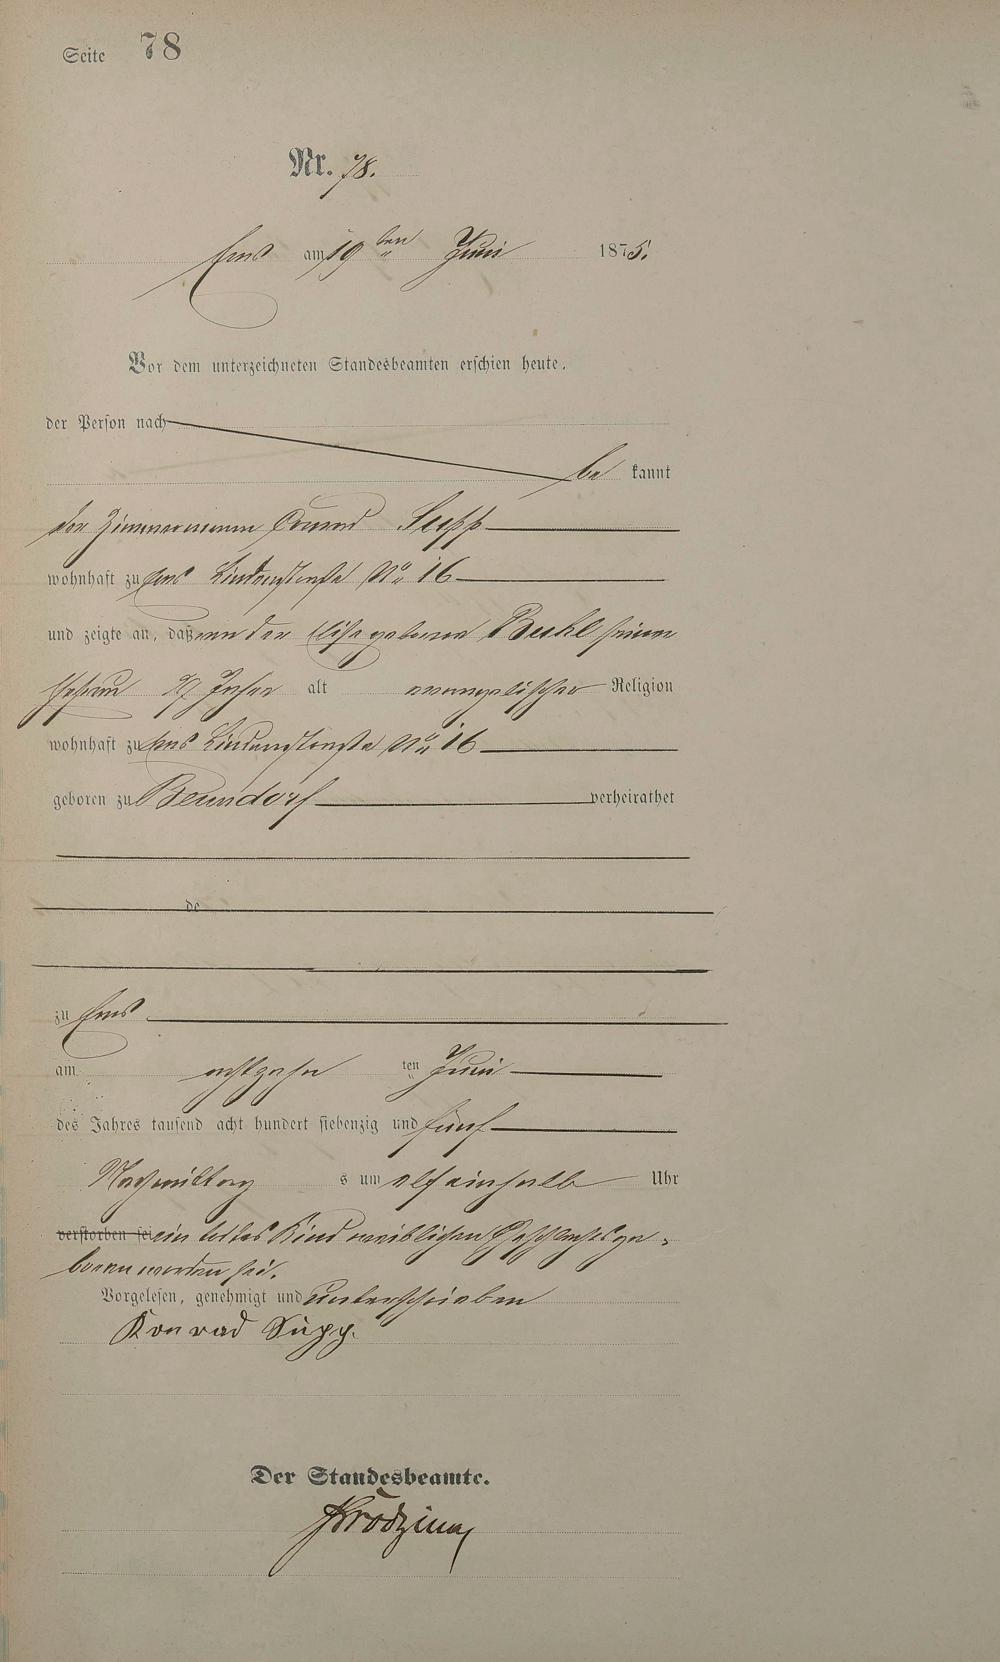 Seite 78
Nr. 78.
Ems am 19ten Juni 1875.
Vor dem unterzeichneten Standesbeamten erschien heute,
der Person nach
be kannt
der Zimmermann Conrad Supp
wohnhaft zu Ems Lindenstraße No 16
und zeigte an, daß von der Elise geborene seiner
Ehefrau 27 Jahre alt evangelischer Religion
wohnhaft zu Ems Lindenstraße No 16
geboren zu verheirathet
de
zu Ems
am achtzehn ten Juni
des Jahres tausend acht hundert siebenzig und fünf
Nachmittag s um elfeinhalb Uhr
verstorben sei ein todtes Kind weiblichen Geschlechts ge-
boren worden sei.
Vorgelesen, genehmigt und unterschrieben
Konrad Supp.
Der Standesbeamte.